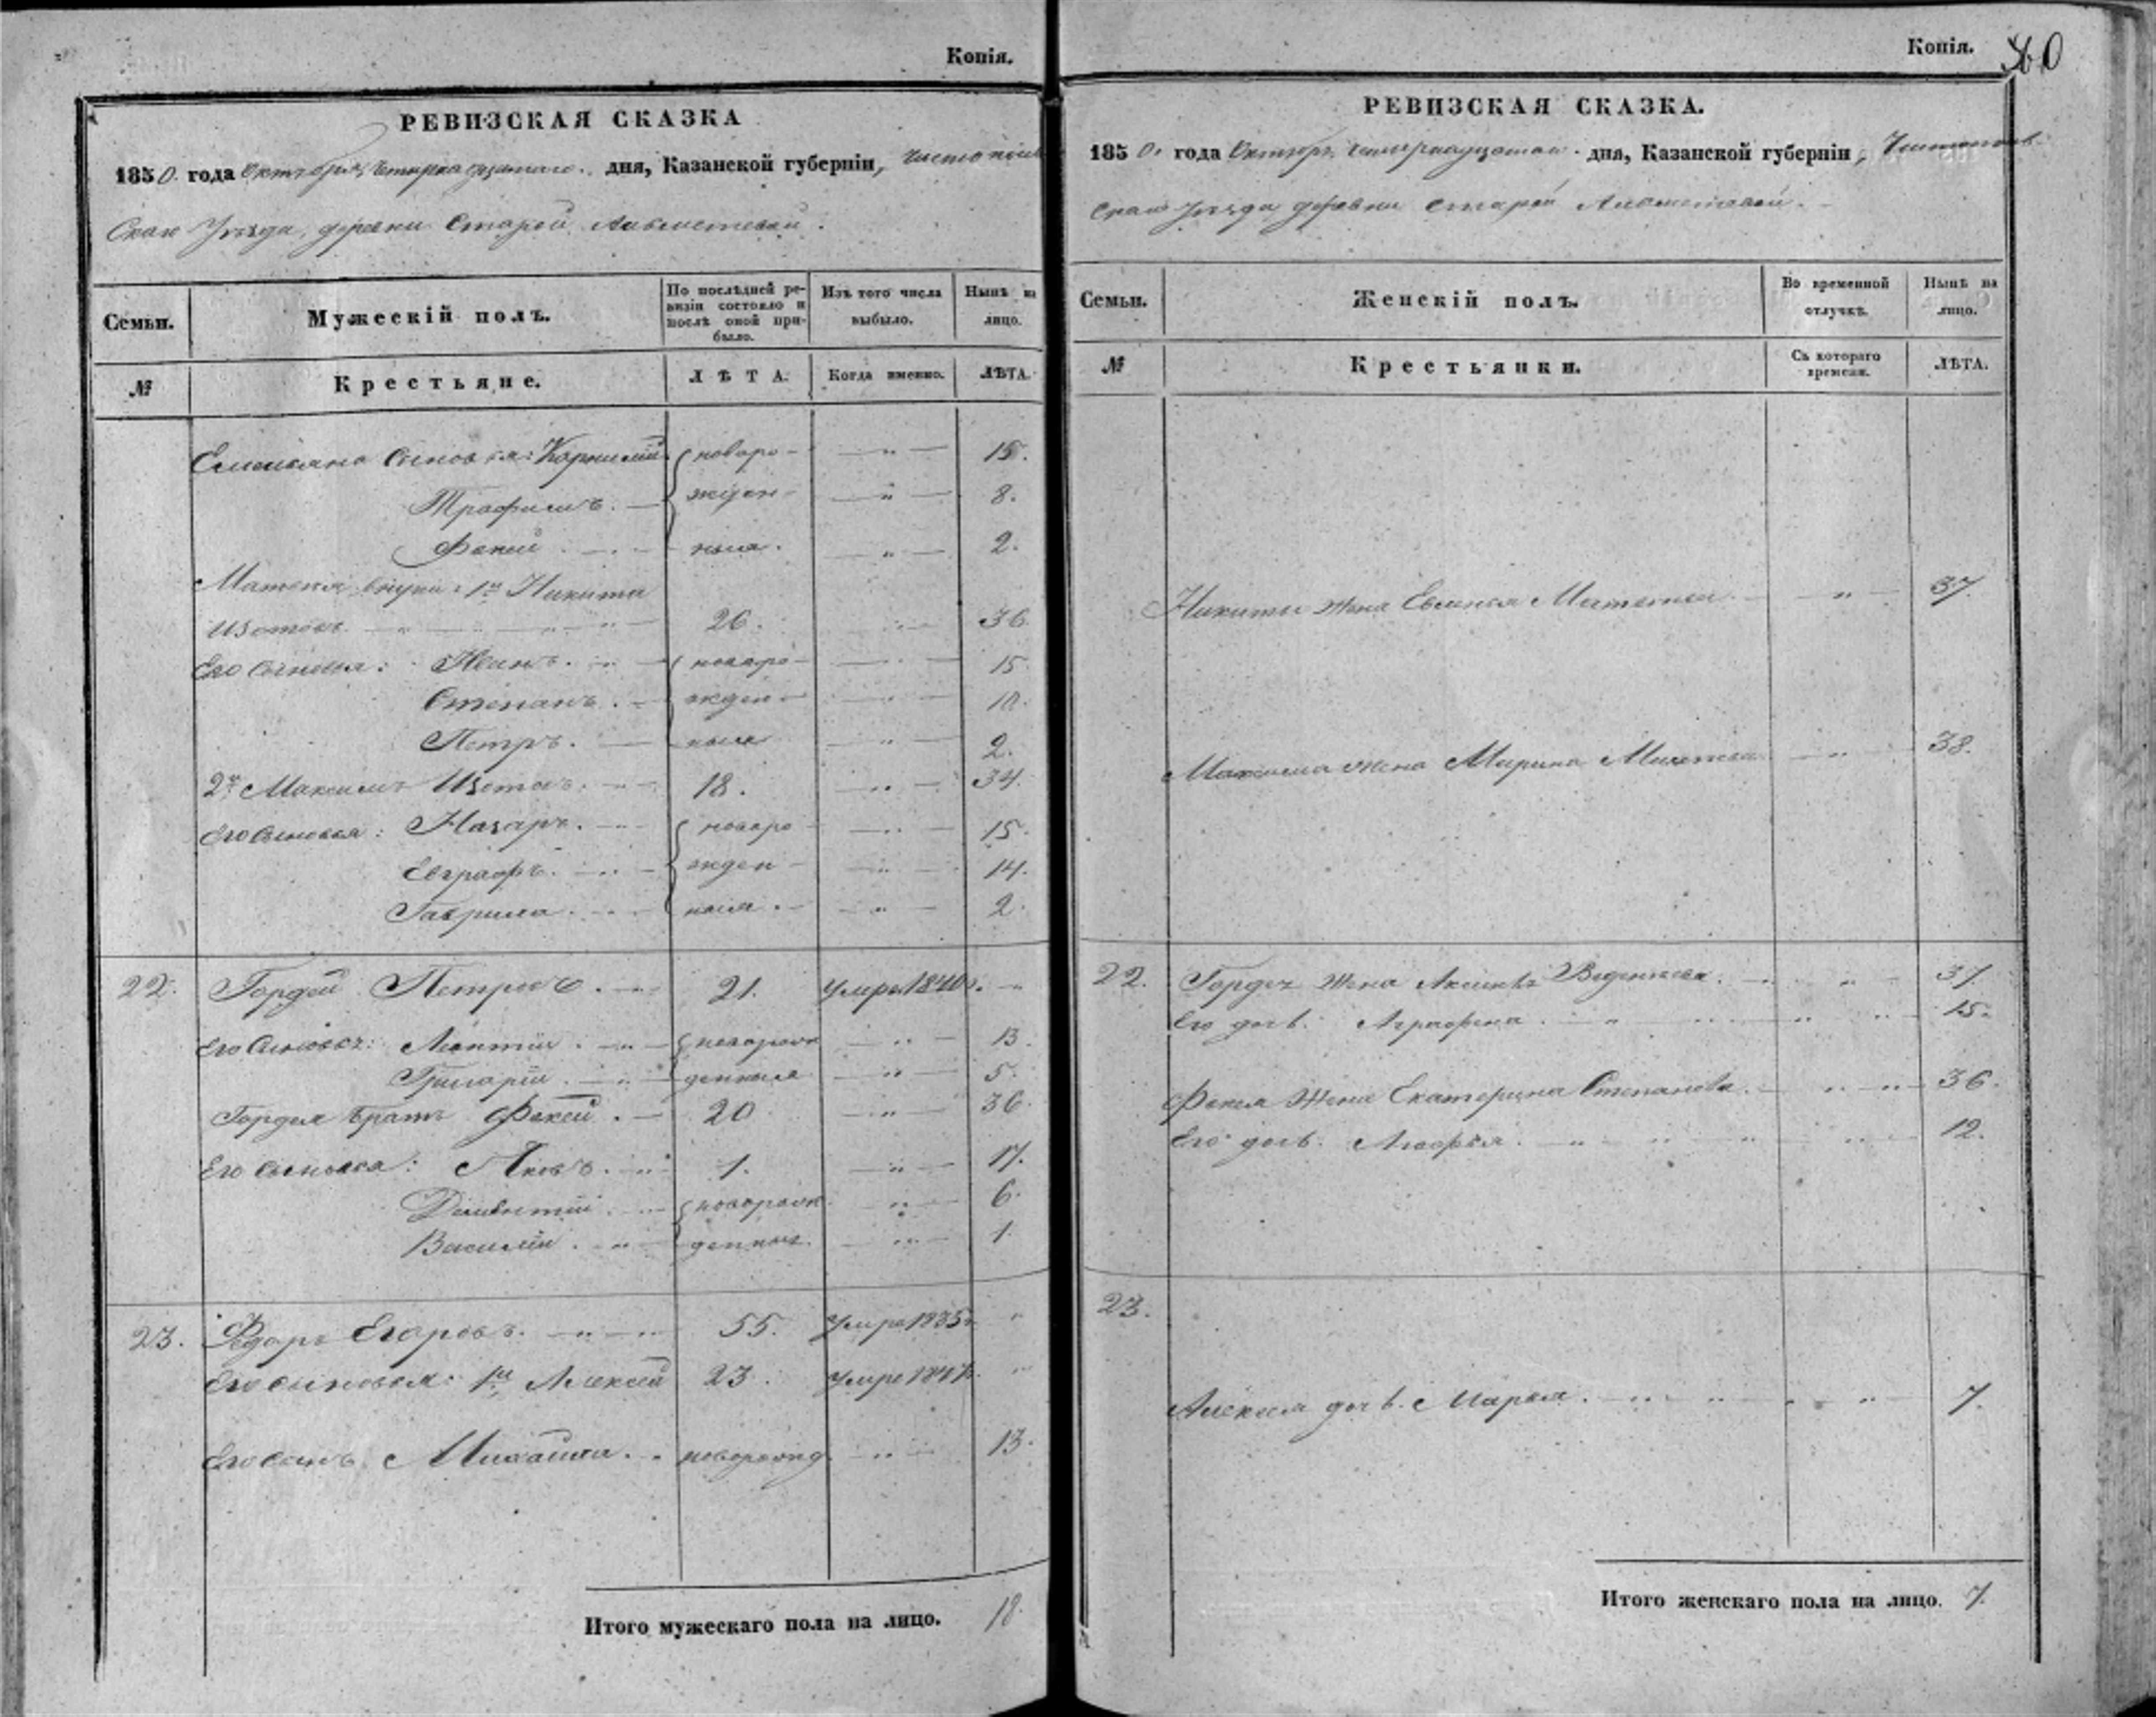 Копія.
РЕВИЗСКАЯ СКАЗКА
1850 года Октября четырнадцатаго дня, Казанской губерніи, Чистополь
скаго Уѣзда, деревни Старой
Семьи.
Мужескій полъ.
По послѣдней ре-
визіи состояло и
послѣ оной при-
было.
Изъ того числа
выбыло.
Нынѣ на
лицо.
№
Крестьяне.
ЛѢТА.
Когда именно.
ЛѢТА.
Емельяна сыновья: Корнилій новоро- " 15.
Трофимъ. жден- " 8.
Фокей ныя. " 2.
Матвея внуки: 1й Никита
Изотовъ 26. " 36.
Его сыновья: Иванъ. новоро- " 15.
Степанъ. жден- " 10.
Петръ. ныя " 2.
2й Максимъ Изотовъ. 18. " 34.
Его сыновья: Назаръ. новоро " 15.
Евграфъ. жден- " 14.
Гаврила. ныя. " 2.
22. Гордей Петровъ. 21. Умре 1840г. "
Его сыновья: Леонтій. новорож " 13.
Григорій. денныя " 5.
Гордея братъ Фокей. 20. " 36.
Его сыновья: Яковъ. 1. " 17.
новорож " 6.
Василій. денныя. " 1.
23. Федоръ Егоровъ. 55. Умре 1835г. "
Его сыновья: 1й Алексей 23. Умре "
Его сынъ Михайла. новорожд. " 13.
Итого мужескаго пола на лицо. 18.
Копія.
РЕВИЗСКАЯ СКАЗКА.
1850. года Октября четырнадцатаго дня, Казанской губерніи, Чистополь
скаго Уѣзда деревни Старой
Семьи.
Женскій полъ.
Во временной
отлучкѣ.
Нынѣ на
лицо.
№
Крестьянки.
Съ котораго
времени.
ЛѢТА.
Никиты жена Матвеева " 37.
Максима жена Марина " 38.
22. Гордея жена Аксинья " 37.
Его дочь: Аграфена. " 15.
Фокея жена Екатерина Степанова. " 36.
Его дочь: " 12.
23.
Алексея дочь Марья. " 7.
Итого женскаго пола на лицо. 7.